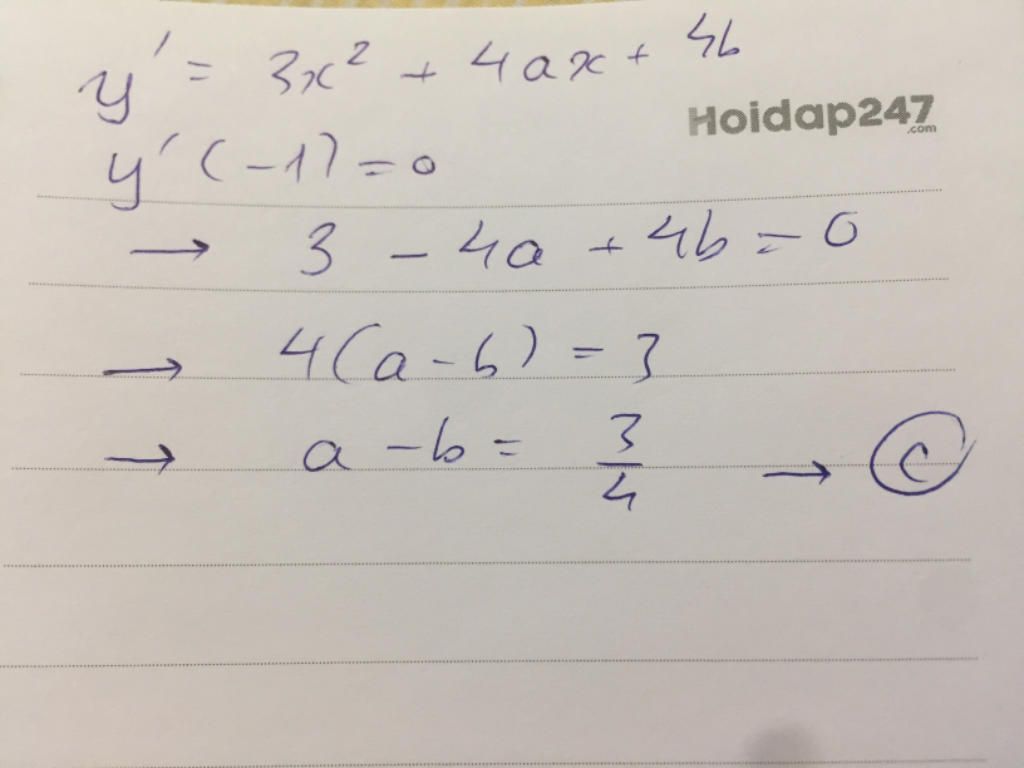 y' = 3x² + 4ax + 4b
Hoidap247
.com
y'(-1) = 0
→ 3 - 4a + 4b = 0
→ 4(a - b) = 3
→ a - b = 3/4 → C